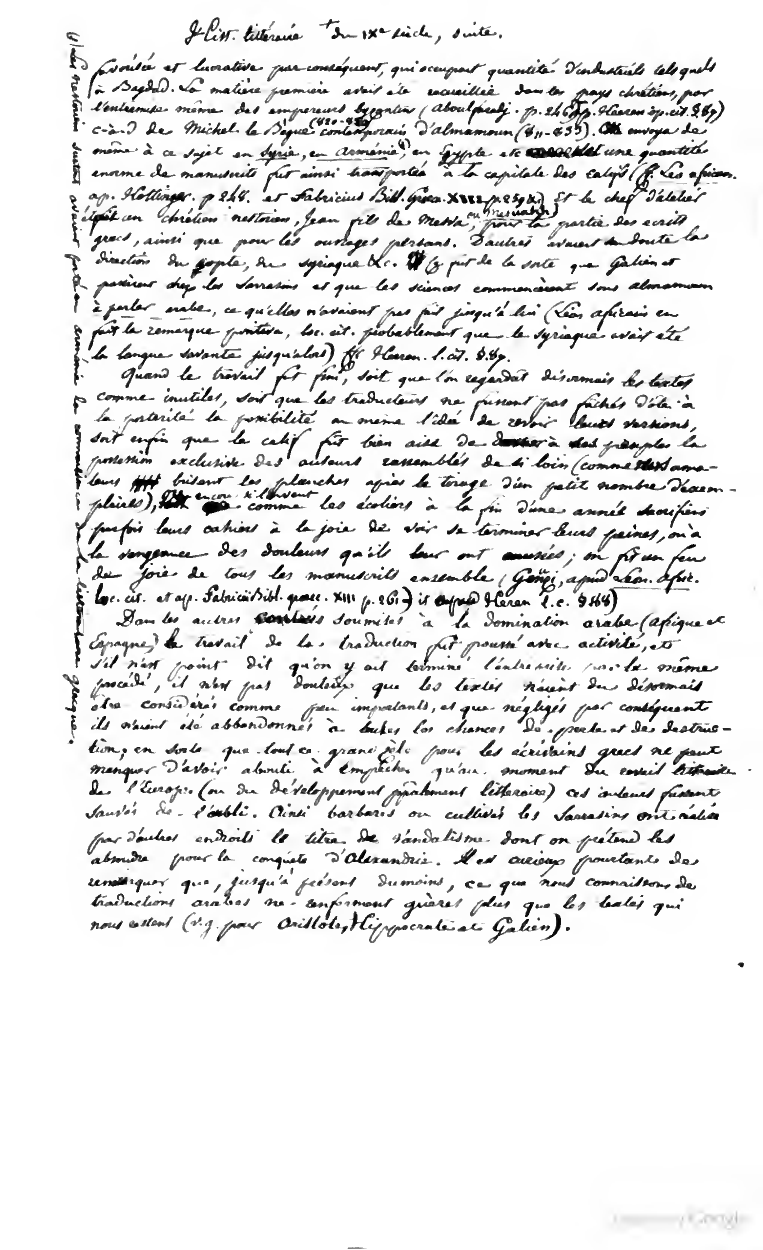 Hist. littéraire † du IXe siècle, suite.
favorisée et lucrative par conséquent, qui occupait quantité d'industriels tels quels
à Bagdad. La matière première avait été recueillie dans les pays chrétiens, par
l'entremise même des empereurs byzantins (Aboulfaradj. p. 246. Heeren op. cit. § 89)
c-à-d de Michel le Bègue (820-829) contemporain d'Almamoun (811-833). On envoya de
même à ce sujet en Syrie, en Arménie (1), en Egypte etc une quantité
enorme de manuscrits fut ainsi transportée à la capitale des califs (cf. Léo african.
ap. Hottinger. p 248. et Fabricius Bibl. Graec. XIII p. 259). Et le chef d'atelier
était un chrétien nestorien, Jean fils de Messa, (ou Mesuach) pour la partie des ecrits
grecs, ainsi que pour les ouvrages persans. D'autres avaient sans doute la
direction du copte, du syriaque &c. Ce fut de la sorte que Galien et
passèrent chez les Sarrasins et que les sciences commencèrent sous almamoun
à parler arabe, ce qu'elles n'avaient pas fait jusqu'à lui (Léon africain en
fait la remarque positive, loc. cit. probablement que le syriaque avait été
la langue savante jusqu'alors) cf. Heeren. l. cit. § 89.
Quand le travail fut fini, soit que l'on regardât désormais les textes
comme inutiles, soit que les traducteurs ne fussent pas fâchés d'ôter à
la postérité la possibilité ou même l'idée de revoir leurs versions,
soit enfin que le calif fût bien aise de à peuples la
possession exclusive des auteurs rassemblés de si loin (comme ama-
teurs brisent les planches après le tirage d'un petit nombre d'exem-
plaires), comme les écoliers à la fin d'une année sacrifient
parfois leurs cahiers à la joie de voir se terminer leurs peines, ou à
la vengeance des douleurs qu'ils leur ont causées; on fit un feu
de joie de tous les manuscrits ensemble ( apud Léon. afric.
loc. cit. et ap. Fabricii Bibl. graec. XIII p. 261) Heeren l. c. § 88)
Dans les autres contrées soumises à la domination arabe (afrique et
Espagne) le travail de la traduction fut poussé avec activité, et
s'il n'est point dit qu'on y ait terminé l'entreprise par le même
procédé, il n'est pas douteux que les textes n'aient dû désormais
être considérés comme peu importants, et que négligés par conséquent
ils n'aient été abbandonnés à toutes les chances de perte et de destruc-
tion; en sorte que tout ce grand zèle pour les écrivains grecs ne peut
manquer d'avoir abouti à empêcher qu'au moment du reveil littéraire
de l'Europe (ou du développement purement littéraire) ces auteurs fussent
sauvés de l'oubli. Ainsi barbares ou cultivés les Sarrasins ont mérité
par d'autres endroits le titre de vandalisme dont on prétend les
absoudre pour la conquête d'Alexandrie. Il est curieux pourtant de
remarquer que, jusqu'à présent du moins, ce que nous connaissons de
traductions arabes ne renferment guères plus que les textes qui
nous restent (v.g. pour Aristote, Hippocrate et Galien).
(1) Les nestoriens surtout avaient porté en arménie la connaissance de la littérature grecque.
Google